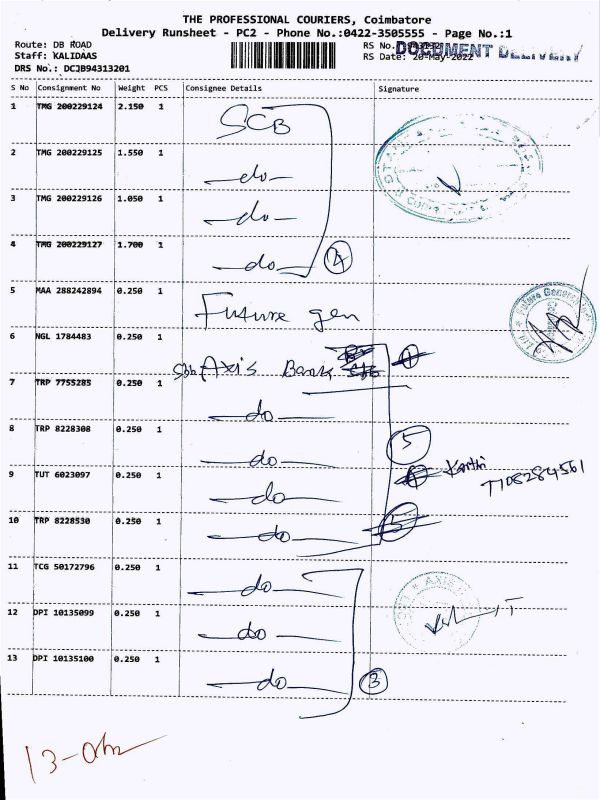 THE PROFESSIONAL COURIERS, Coimbatore
Delivery Runsheet - PC2 - Phone No.:0422-3505555 - Page No.:1
Route: DB ROAD
RS No.
DOCUMENT DELIVERY
Staff: KALIDAAS
RS Date: 20-May-2022
DRS No.: DCJB94313201
S No Consignment No Weight PCS Consignee Details Signature
1 TMG 200229124 2.150 1 SCB
2 TMG 200229125 1.550 1 —do—
3 TMG 200229126 1.050 1 —do—
4 TMG 200229127 1.700 1 —do— 4
5 MAA 288242894 0.250 1 Future gen
Future General
6 NGL 1784483 0.250 1 Axis Bank
7 TRP 7755285 0.250 1 —do—
8 TRP 8228308 0.250 1 —do— 5
9 TUT 6023097 0.250 1 —do— Karthi 7708284561
10 TRP 8228530 0.250 1 —do—
11 TCG 50172796 0.250 1 —do—
AXIS
12 DPI 10135099 0.250 1 —do—
13 DPI 10135100 0.250 1 —do— 3